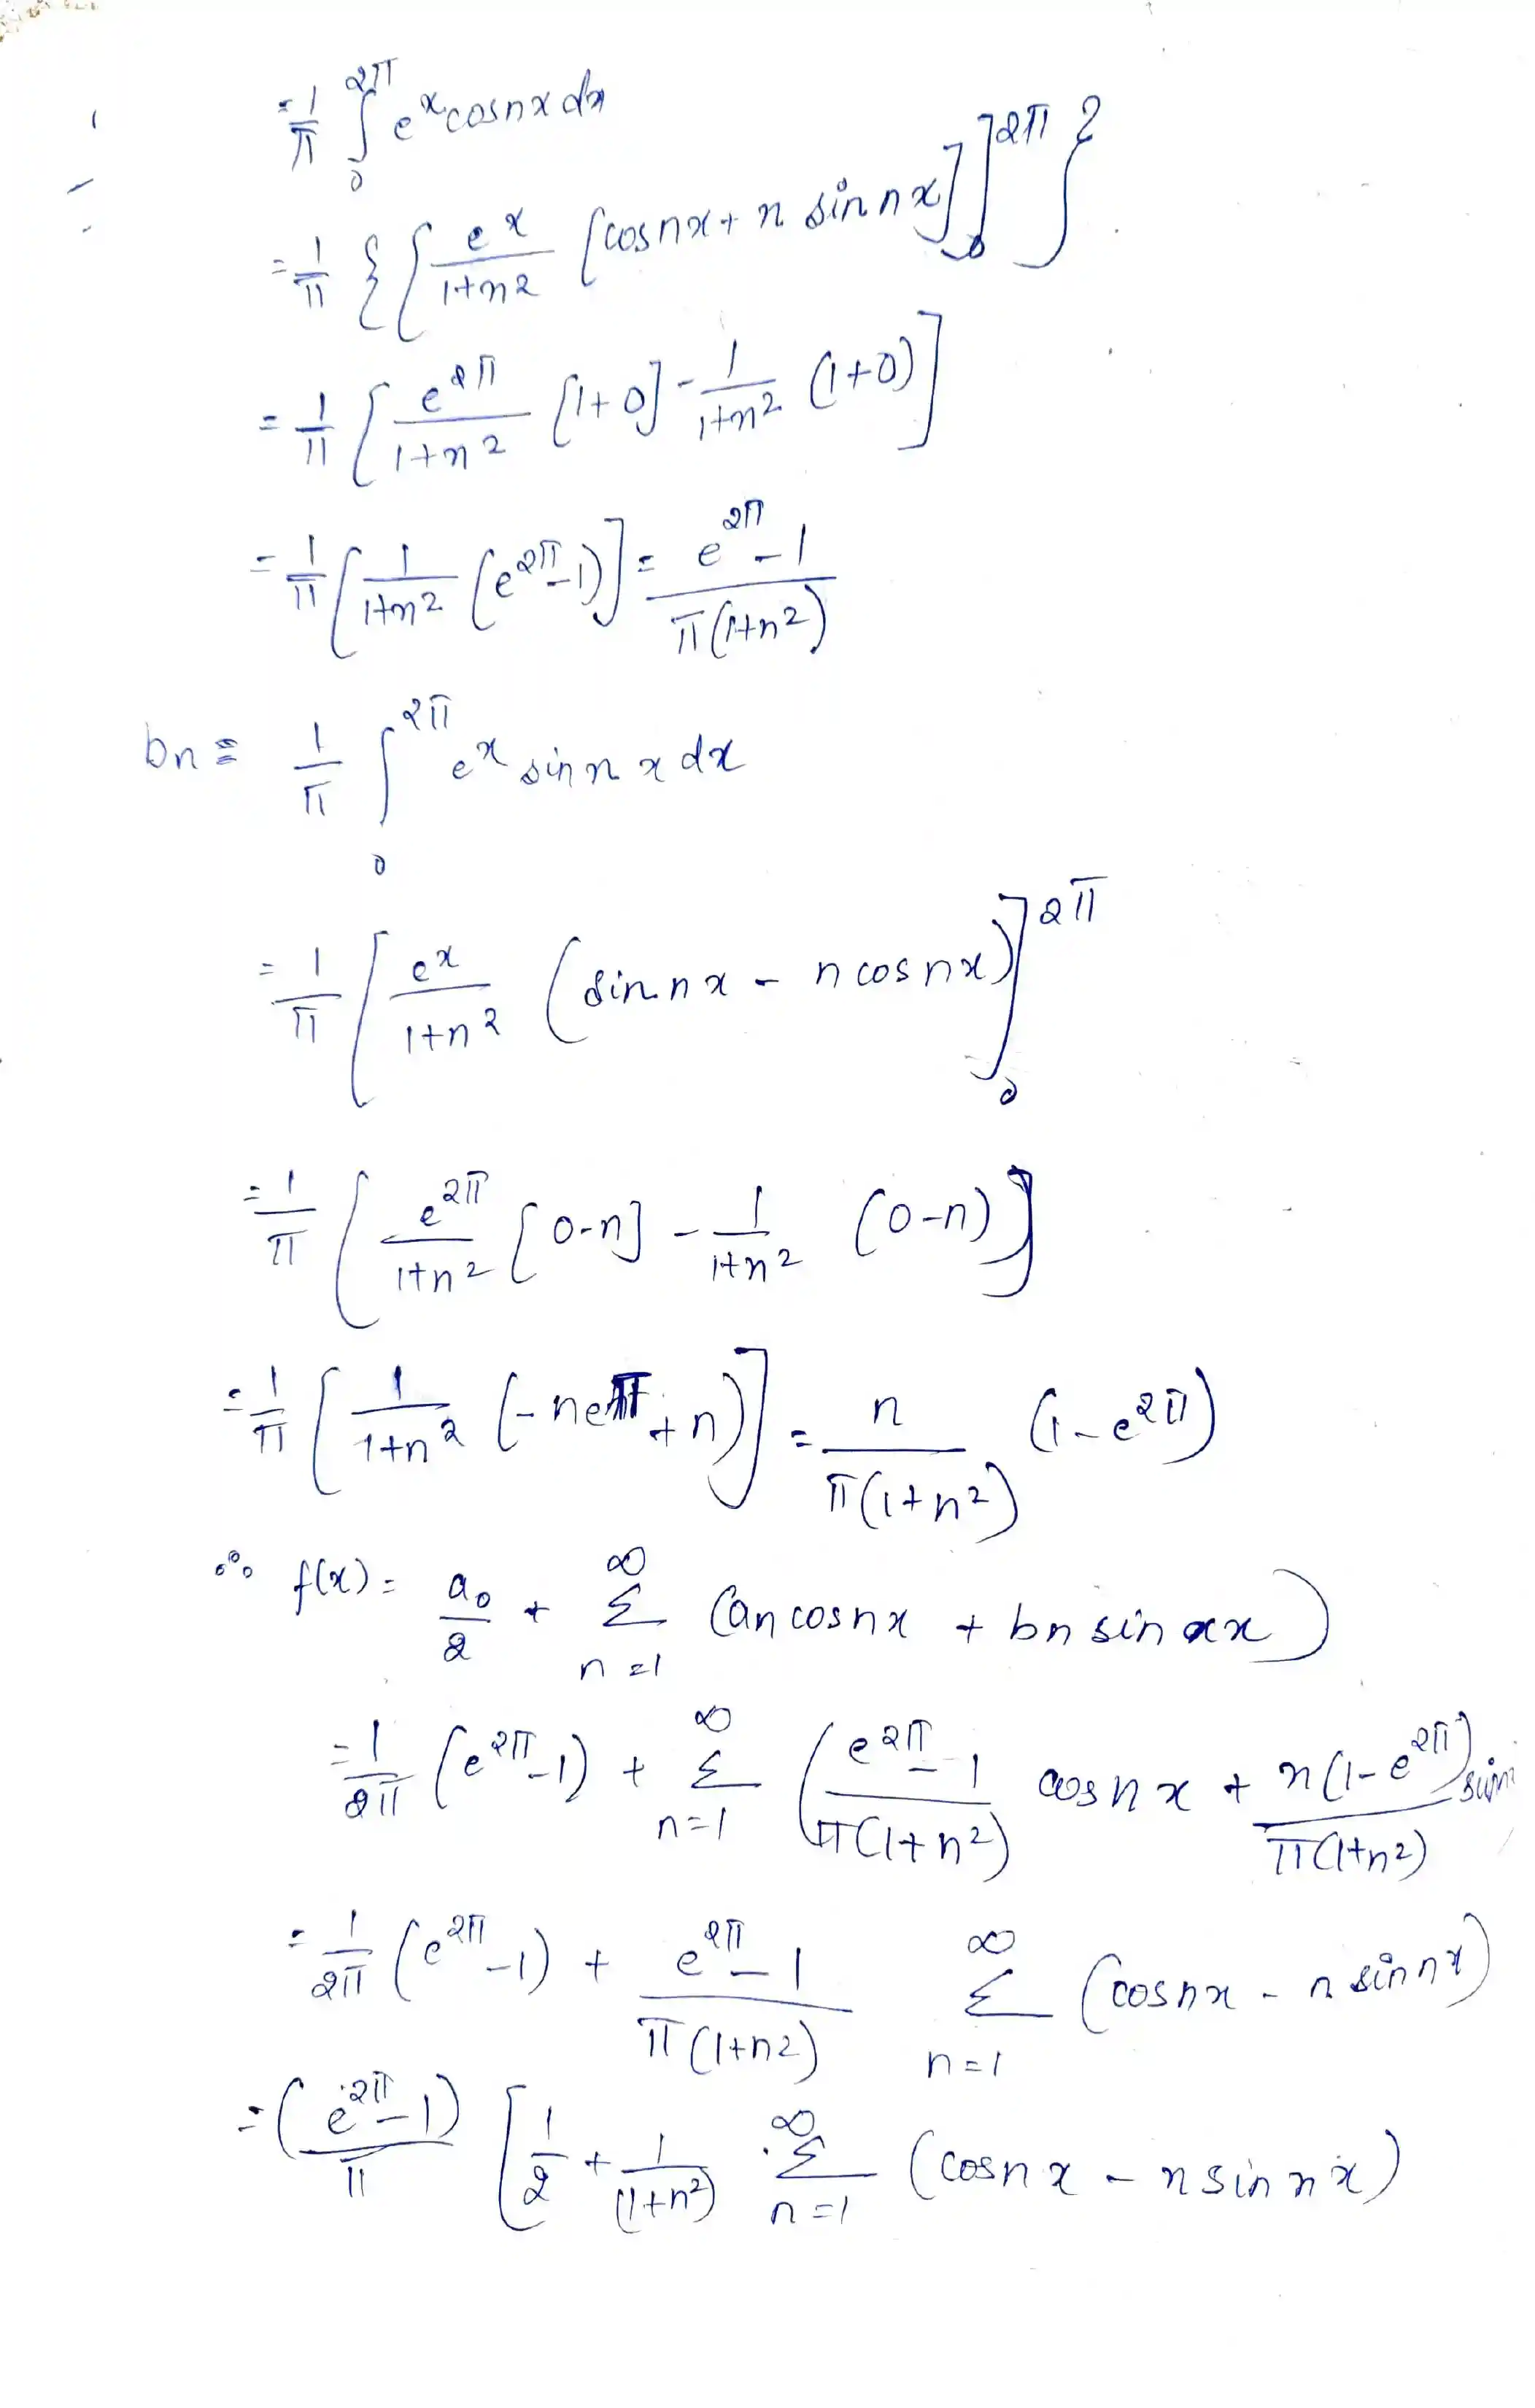 = 1/π ∫₀^2π e^x cosnx dx
= 1/π { [ e^x/(1+n²) [cosnx + n sin nx] ]₀^2π }
= 1/π [ e^2π/(1+n²) [1+0] - 1/(1+n²) (1+0) ]
= 1/π [ 1/(1+n²) (e^2π - 1) ] = (e^2π - 1)/(π(1+n²))
bn = 1/π ∫₀^2π e^x sin nx dx
= 1/π [ e^x/(1+n²) (sin nx - n cos nx) ]₀^2π
= 1/π [ e^2π/(1+n²) [0-n] - 1/(1+n²) (0-n) ]
= 1/π [ 1/(1+n²) (-ne^π + n) ] = n/(π(1+n²)) (1 - e^2π)
∴ f(x) = a₀/2 + Σ_{n=1}^∞ (an cosnx + bn sin x)
= 1/2π (e^2π - 1) + Σ_{n=1}^∞ ( (e^2π - 1)/(π(1+n²)) cosnx + n(1 - e^2π)/(π(1+n²)) sin
= 1/2π (e^2π - 1) + (e^2π - 1)/(π(1+n²)) Σ_{n=1}^∞ (cosnx - n sin nx)
= (e^2π - 1)/π [ 1/2 + 1/(1+n²) Σ_{n=1}^∞ (cosnx - n sin nx)